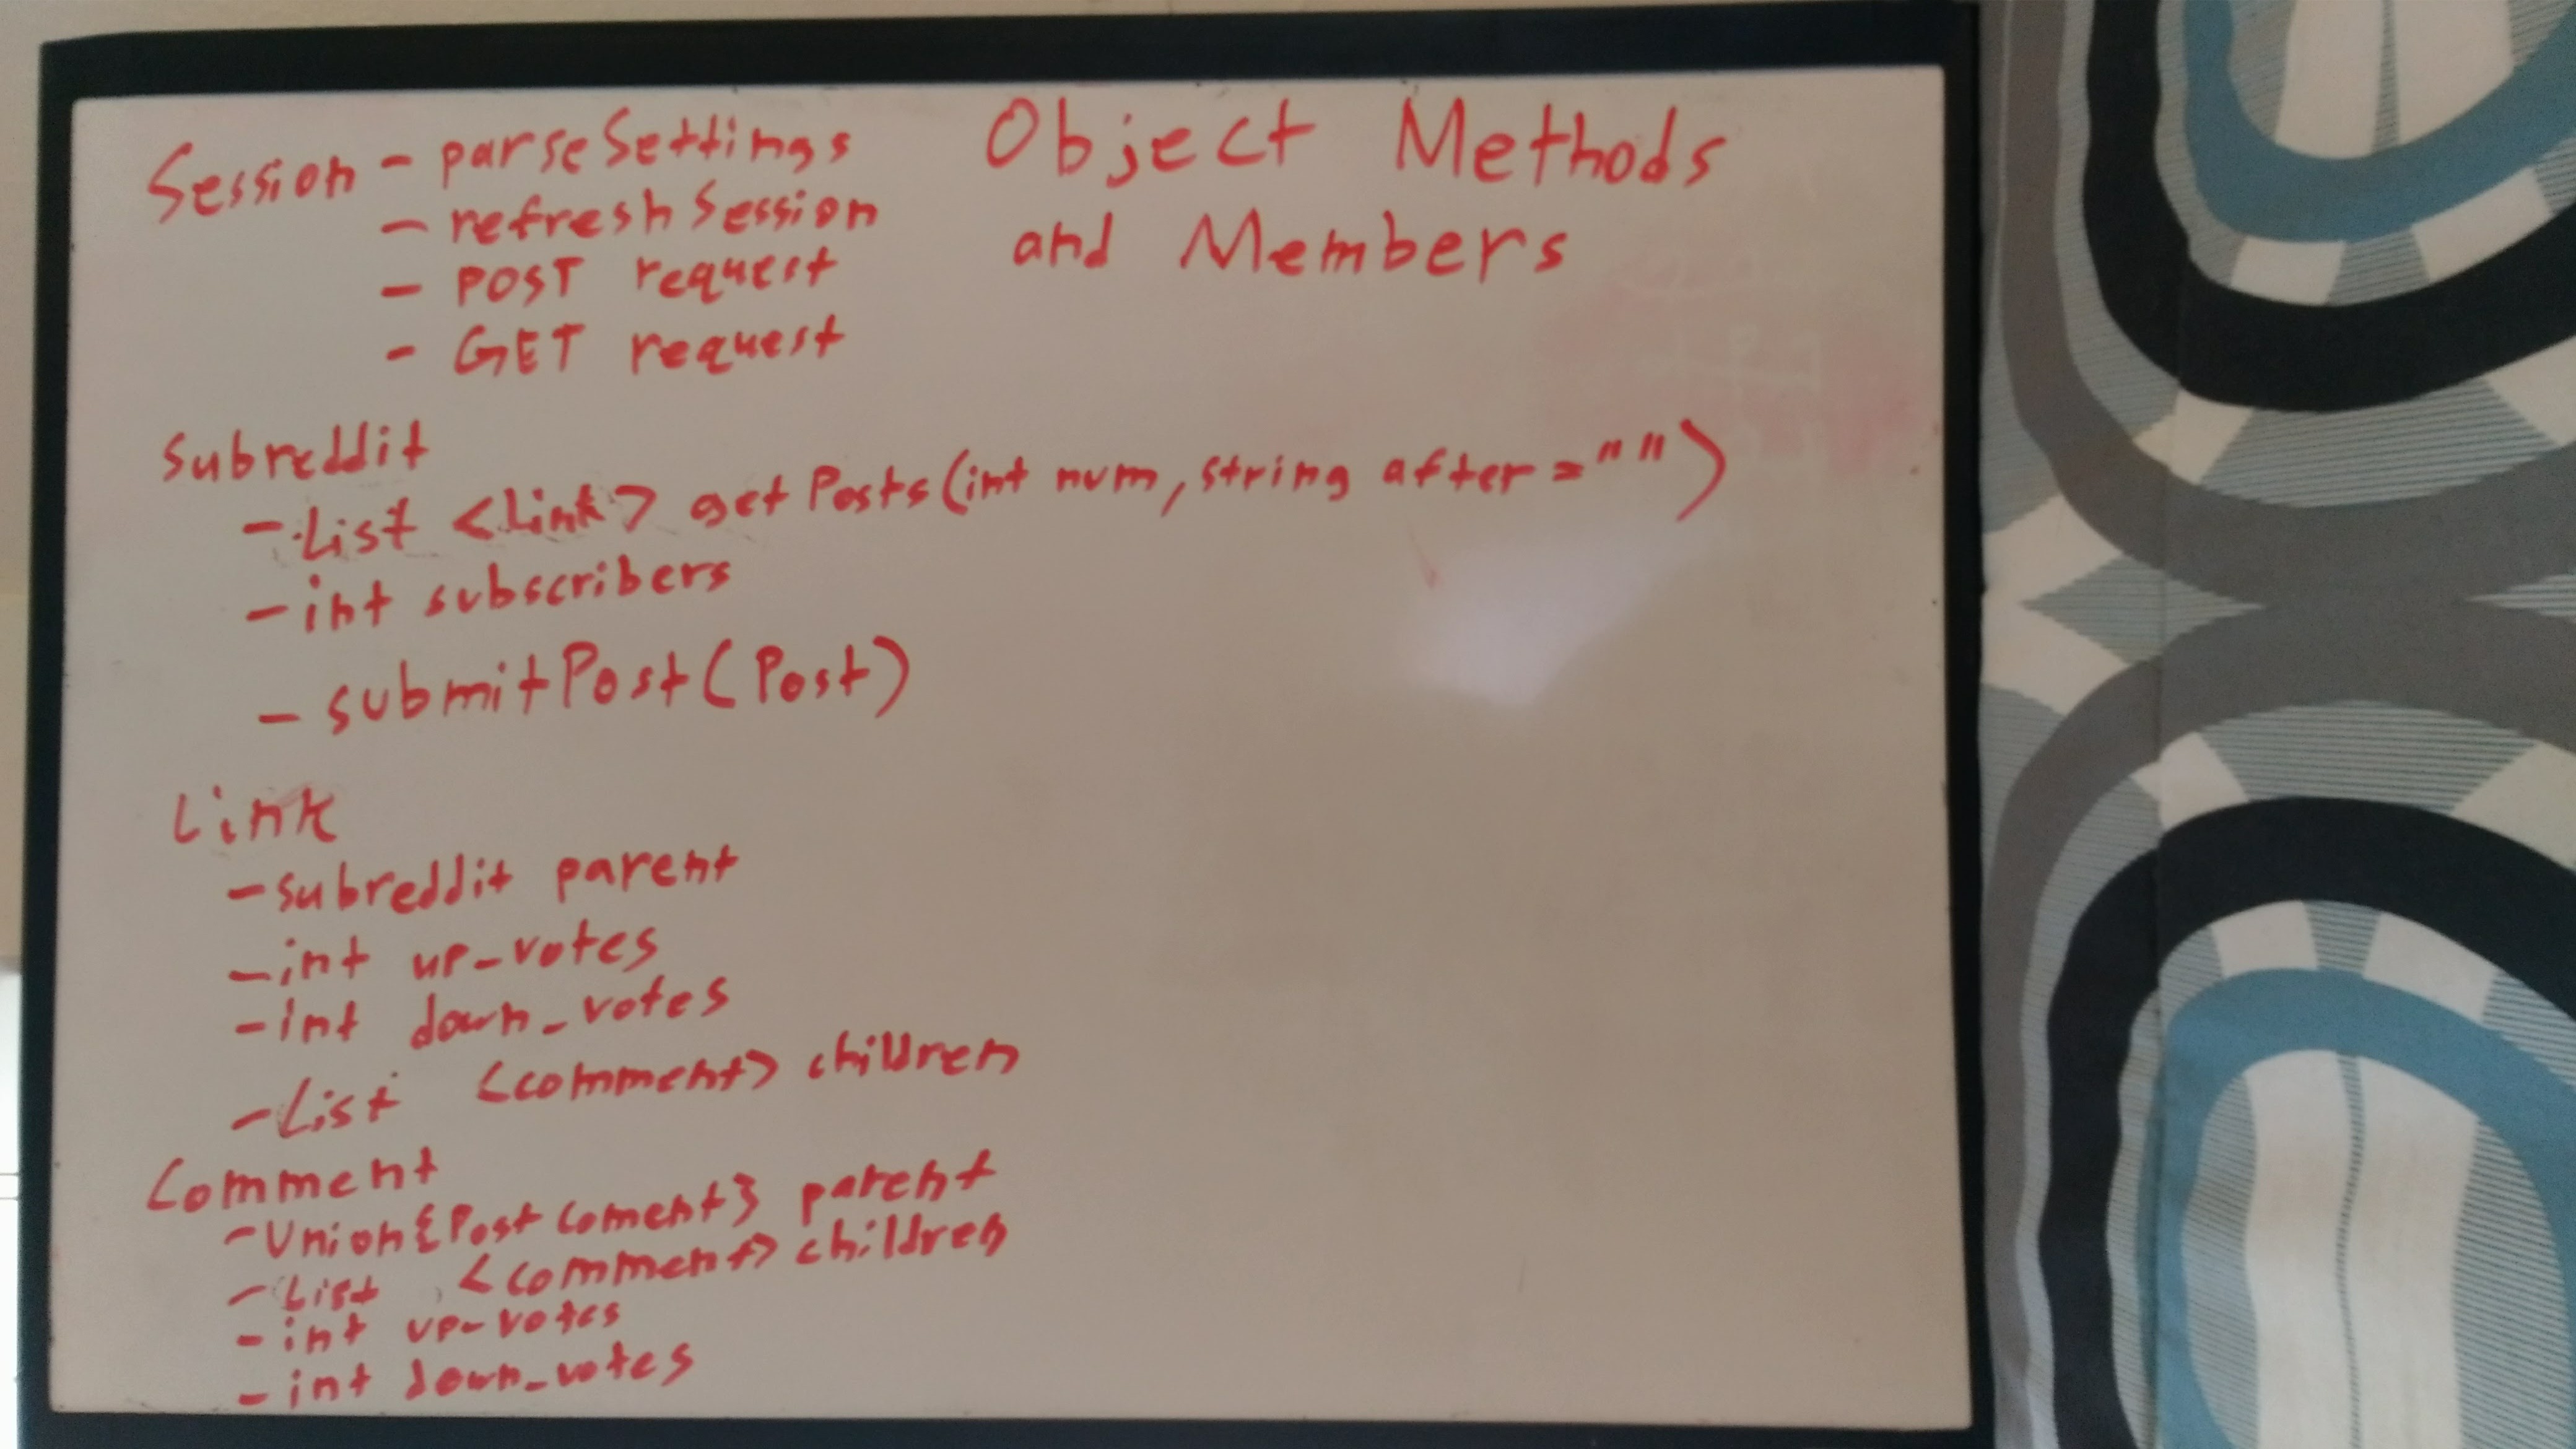 Object Methods
and Members
Session - parseSettings
- refreshSession
- POST request
- GET request
Subreddit
- List <Link> getPosts(int num, string after = "")
- int subscribers
- submitPost(Post)
Link
- subreddit parent
- int up_votes
- int down_votes
- List <comment> children
Comment
- Union{Post Coment} parent
- List <comment> children
- int up_votes
- int down_votes